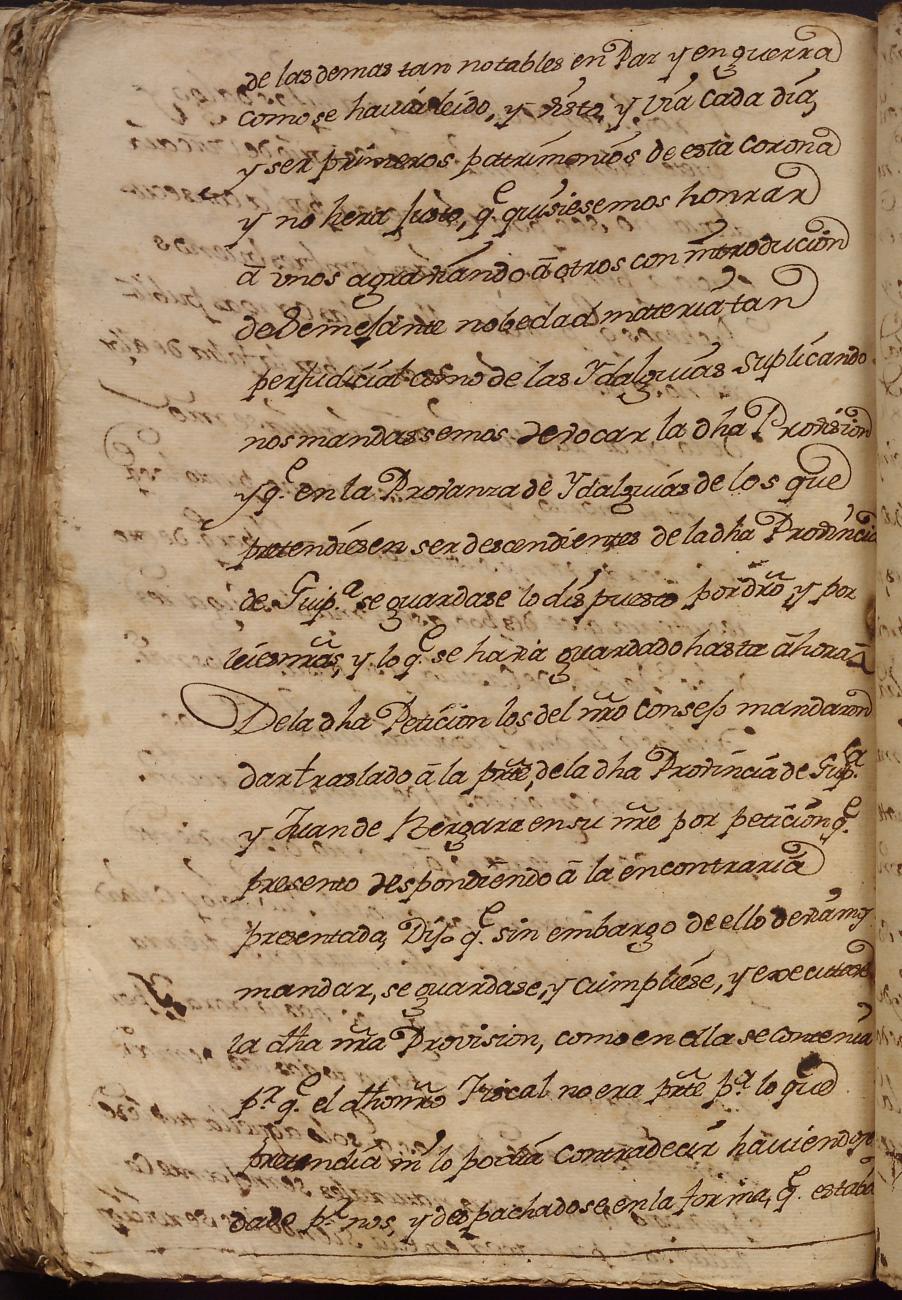 de las demas tan notables en Paz y en guerra
como se havia leido, y visto, y via cada dia,
y ser primeros patrimonios de esta corona
y no hera justo, q.e quisiesemos honrrar
ā vnos agraviando ā otros con introducion
de semejante nobedad materia tan
perjudicial como de las Ydalguias suplicando
nos mandassemos revocar la dha Provision
y q.e en la Provanza de Ydalguias de los que
pretendiesen ser descendientes de la dha Provincia
de Guip.a se guardase lo dispuesto por dro y por
leies nr̃as, y lo q.e se havia guardado hasta āhora
De la dha Peticion los del nr̃o Consejo mandaron
dar traslado ā la pr̃te, de la dha Provincia de Guip.a
y Juan de Bergara en su nr̃e por peticion q.e
presento respondiendo ā la en contraria
presentada, Dijo q.e sin embargo de ello deviamos
mandar, se guardase, y cumpliese, y executase
la dha nr̃a Provision, como en ella se contenia
p.r q.e el dho nr̃o Fiscal no era pr̃te p.a lo que
pretendia ni lo podia contradecir haviendose
dado p.r nos, y despachadose, en la forma, q.e estaba